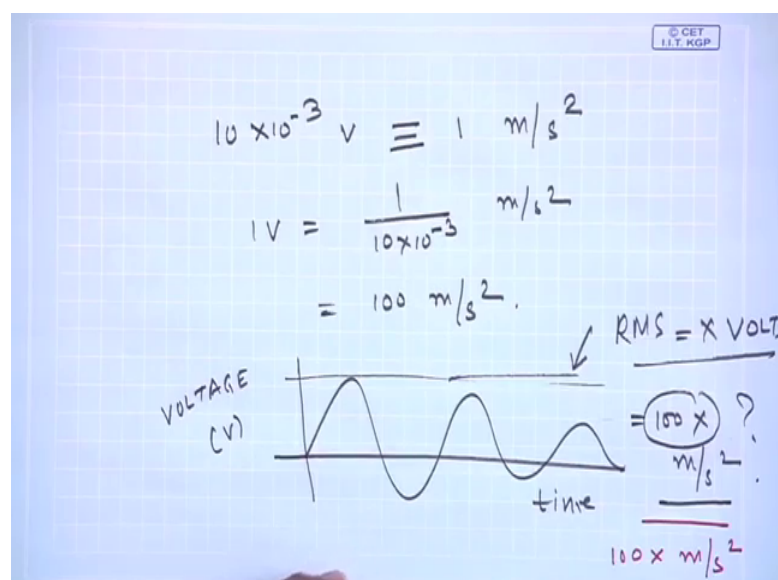 © CET
I.I.T. KGP
10 × 10⁻³ V ≡ 1 m/s²
1V = 1 / 10×10⁻³ m/s²
= 100 m/s².
RMS = X VOLT
VOLTAGE
(V)
= 100 X ?
m/s².
time
100 x m/s²